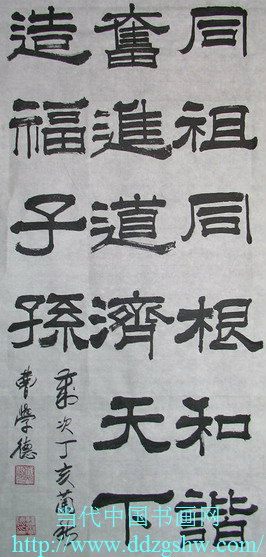 同祖同根和諧
奮進道濟天下
造福子孫
歲次丁亥
學德
当代中国书画网
www.ddzgshw.com/